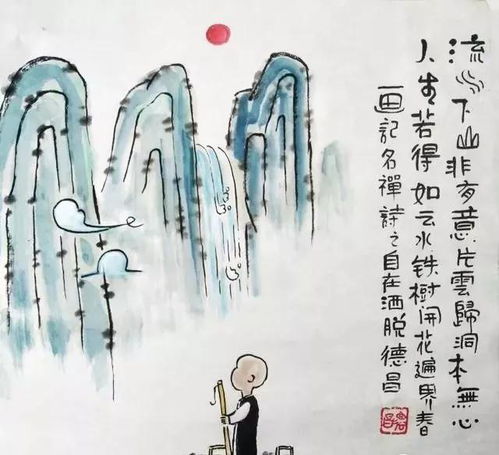 流水下山非有意片雲歸洞本無心
人生若得如云水铁樹開花遍界春
画記名禪詩之自在洒脱德昌